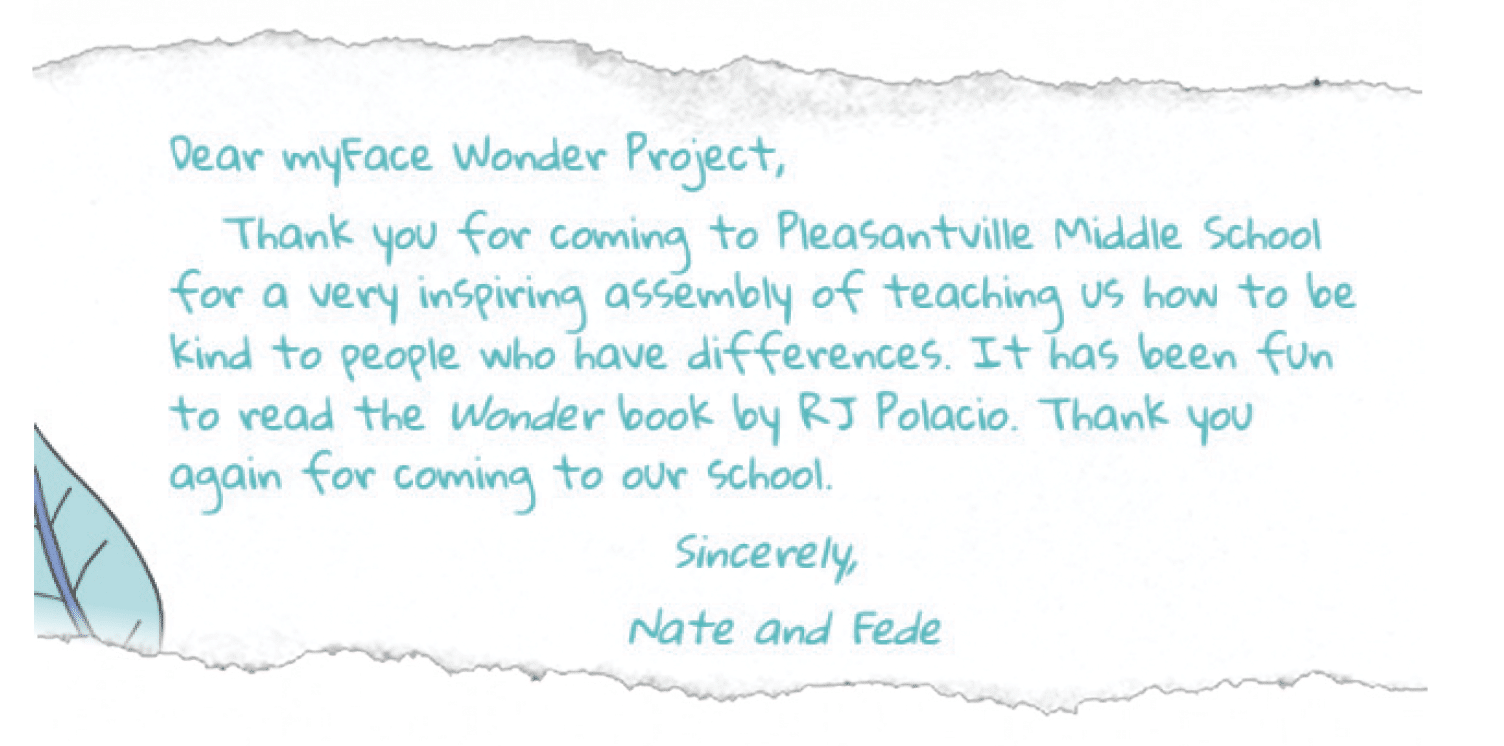 Dear myFace Wonder Project,
Thank you for coming to Pleasantville Middle School
for a very inspiring assembly of teaching us how to be
kind to people who have differences. It has been fun
to read the Wonder book by RJ Polacio. Thank you
again for coming to our school.
Sincerely,
Nate and Fede